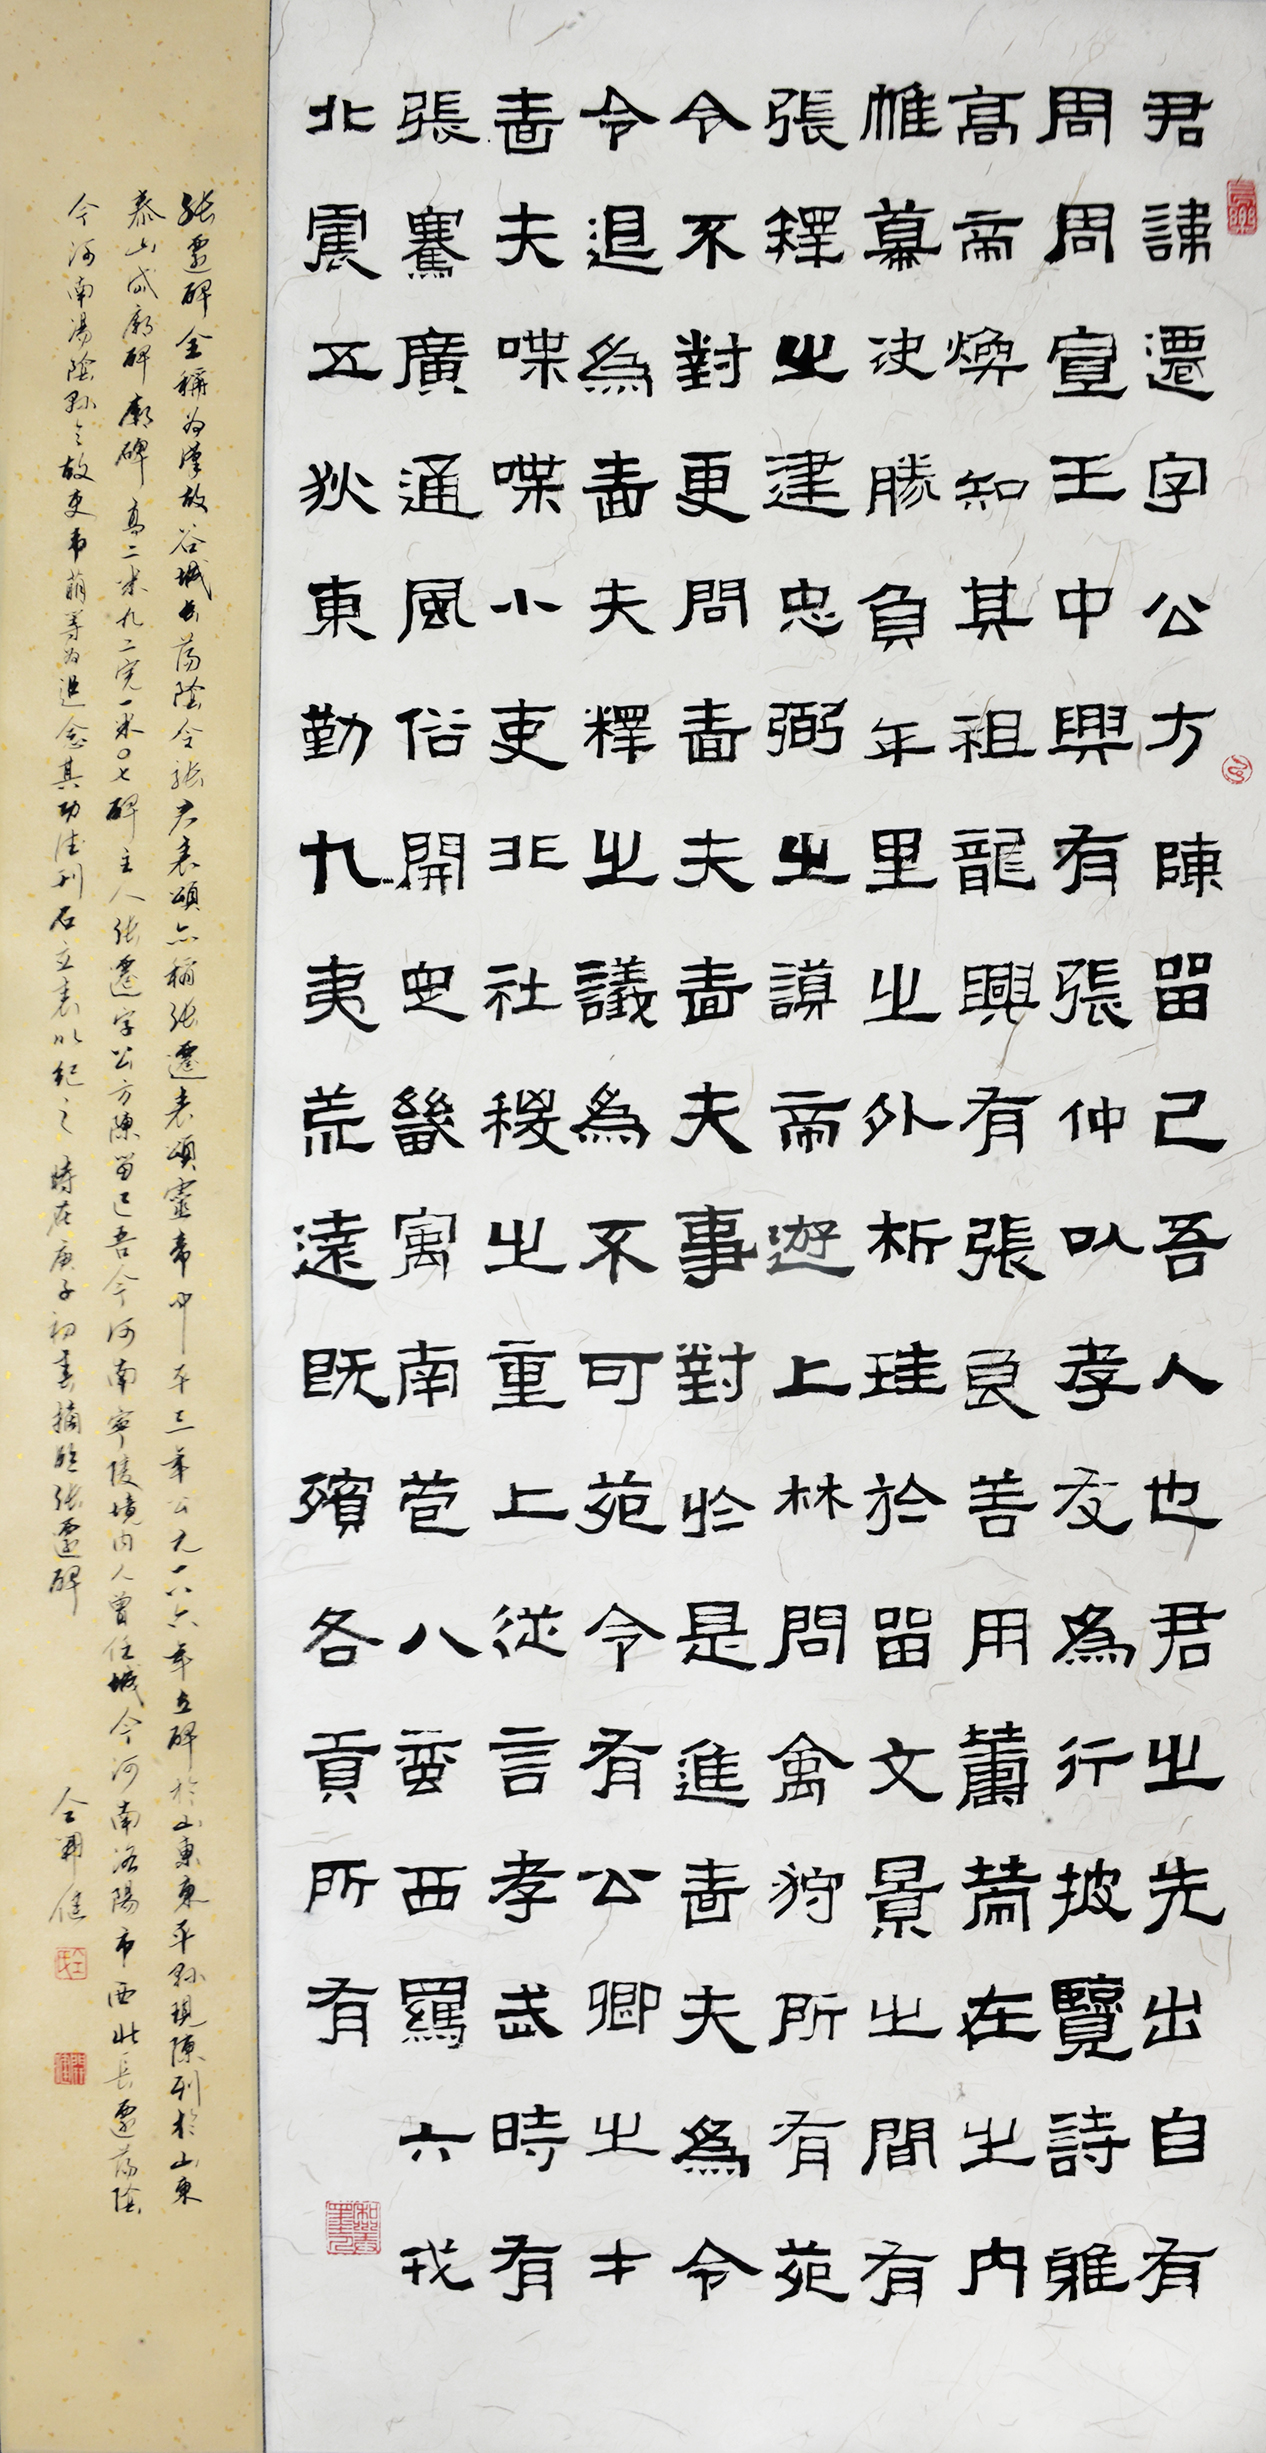 君諱遷字公方陳留己吾人也君之先出自有
周周宣王中興有張仲以孝友為行披覽詩雅
高帝煥知其祖龍興有張良善用籌策在之内
帷幕決勝負年里之外析珪於留文景之間有
張釋之建忠弼之謨帝遊上林問禽狩所有苑
令不對更問嗇夫嗇夫事對於是進嗇夫為令
令退為嗇夫釋之議為不可苑令有公卿之才
嗇夫喋喋小吏非社稷之重上從言孝武時有
張騫廣通風俗開定畿寓南苞八蠻西羈六戎
北震五狄東勤九夷荒遠既殯各貢所有
張遷碑全稱為漢故谷城長蕩陰令張君表頌亦稱張遷表頌靈帝中平三年公元一八六年立碑於山東東平縣現陳列於山東
泰山岱廟碑廊碑高二米九二寬一米〇七碑主人張遷字公方陳留己吾今河南寧陵境内人曾任城今河南洛陽市西北長遷蕩陰
今河南湯陰縣令故吏韋萌等為追念其功德刊石立表以紀之時在庚子初春摘臨張遷碑
仝開健